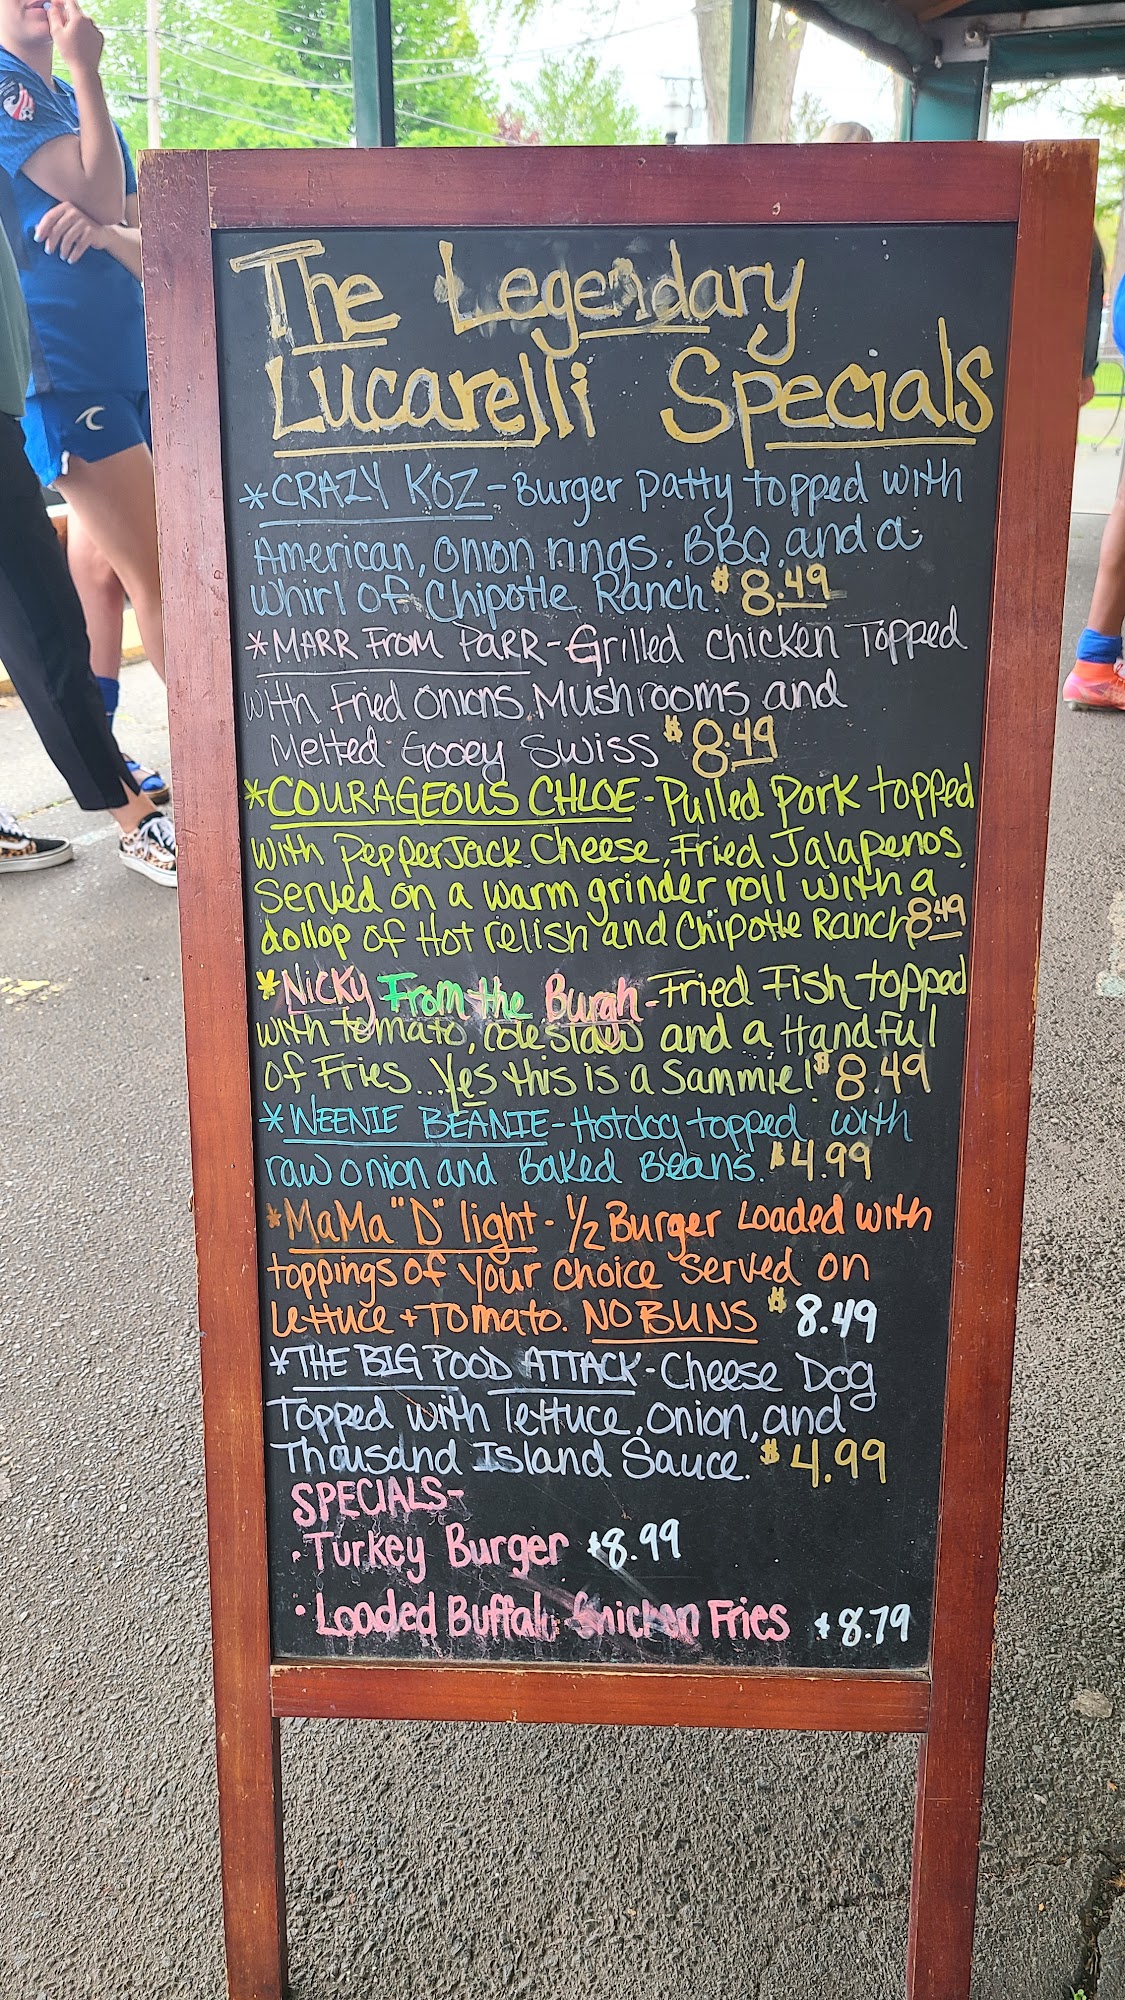 The Legendary
Lucarelli Specials
*CRAZY KOZ-Burger patty topped with
American, onion rings, BBQ, and a
whirl of Chipotle Ranch. $8.49
*MARR FROM PARR-Grilled chicken Topped
with Fried onions, Mushrooms and
Melted Gooey Swiss $8.49
*COURAGEOUS CHLOE-Pulled Pork topped
with PepperJack Cheese, Fried Jalapenos,
Served on a warm grinder roll with a
dollop of Hot relish and Chipotle Ranch 8.49
*Nicky From the Burgh-Fried Fish topped
with tomato, coleslaw and a Handful
of Fries...Yes this is a Sammie! $8.49
*WEENIE BEANIE-Hotdog topped with
raw onion and Baked Beans. $4.99
*MaMa "D" light-1/2 Burger Loaded with
toppings of your choice Served on
Lettuce + Tomato. NO BUNS $8.49
*THE BIG POOD ATTACK-Cheese Dog
Topped with lettuce, onion, and
Thousand Island Sauce. $4.99
SPECIALS-
·Turkey Burger $8.99
·Loaded Buffalo Chicken Fries $8.79